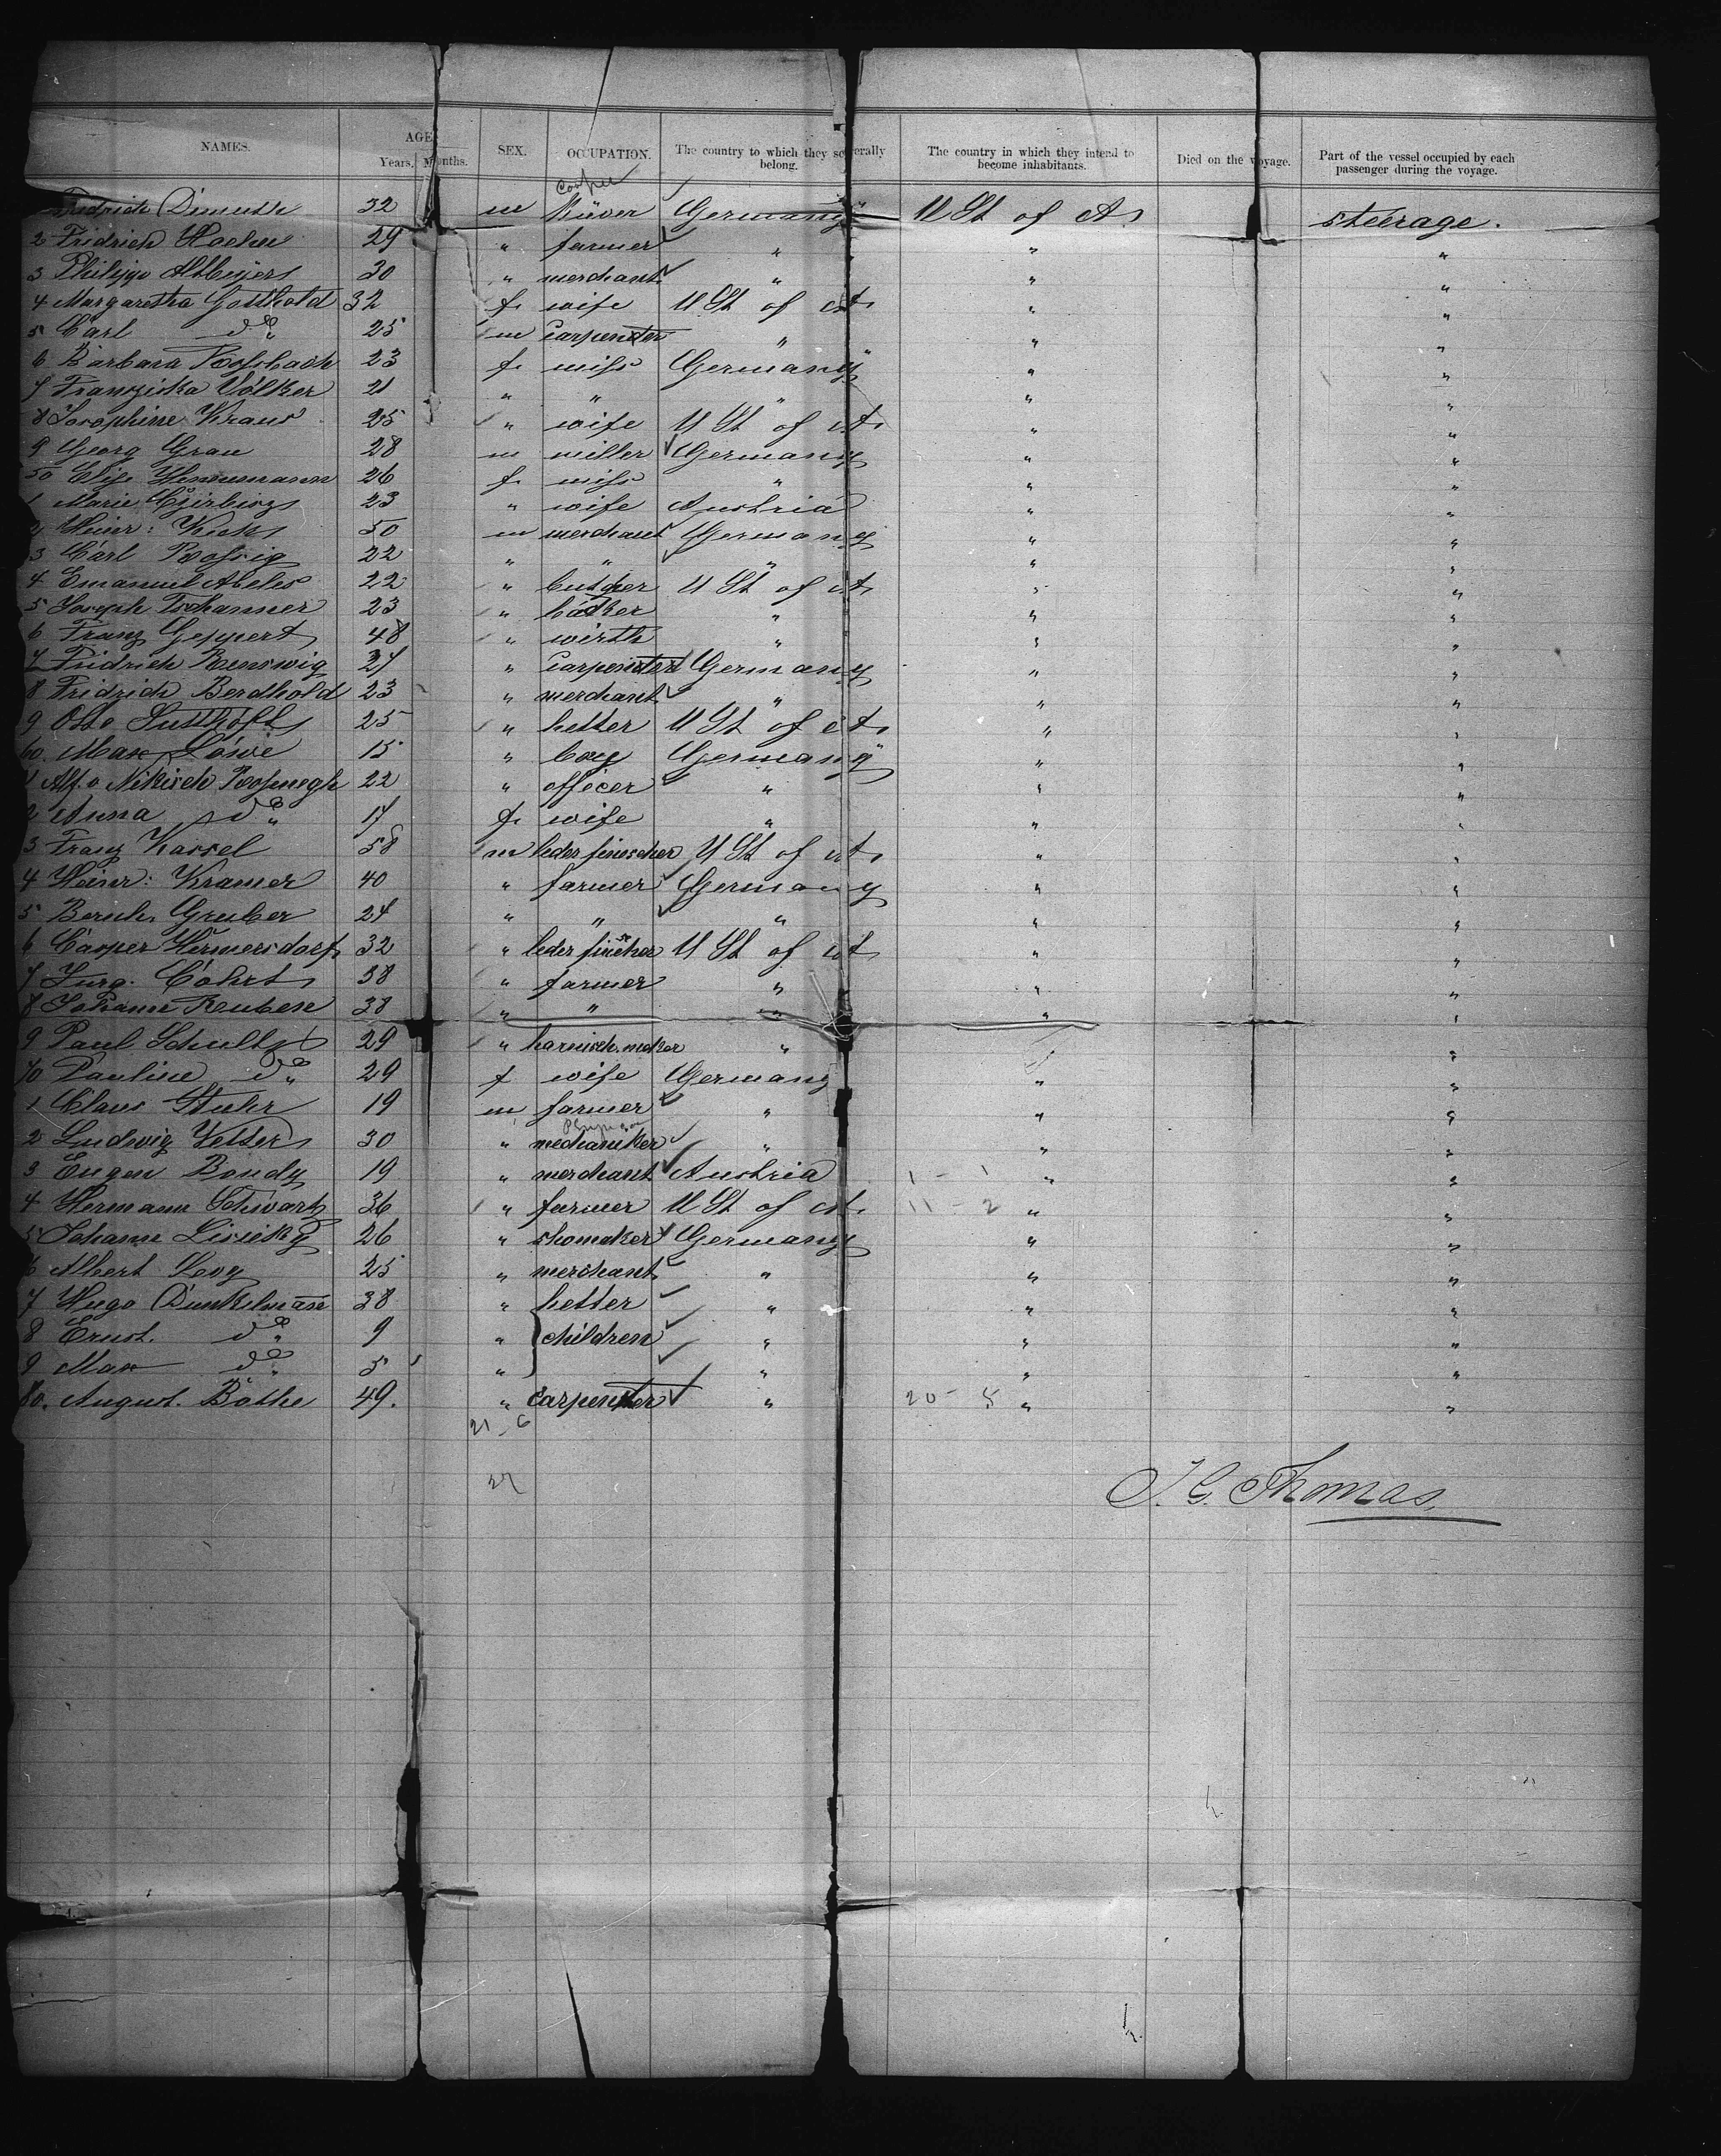 NAMES. AGE Years. Months. SEX. OCCUPATION. The country to which they severally belong. The country in which they intend to become inhabitants. Died on the voyage. Part of the vessel occupied by each passenger during the voyage.
Cooper
Fridrich Dimuth 32 m Küver Germany U St of A. steerage.
2 Fridrich 29 " farmer " " "
3 Philipp 30 " merchant " " "
4 Margaretha Gotthold 32 f. wife U St of A. " "
5 Carl do " 25 m carpenter " " "
6 Barbara Roßbach 23 f. miss Germany " "
7 Franziska Völker 21 " " " " "
8 Josephine Kraus 25 " wife U St of A. " "
9 Georg Grau 28 m miller Germany " "
50 Elise 26 f. miss " " "
1 Marie 23 " wife Austria " "
2 Heinr: 50 m merchant Germany " "
3 Carl Rossig 22 " " " " "
4 Emanuel Abeles 22 " butcher U St of A. " "
5 Joseph Tschanner 23 " bäcker " " "
6 Franz Geppert 48 " wirth " " "
7 Fridrich 27 " carpenter Germany " "
8 Fridrich Berdhold 23 " merchant " " "
9 Otto 25 " hetter U St of A. " "
60. Max Löwe 15 " boy Germany " "
1 22 " officer " " "
2 Anna do " 17 f. wife " " "
3 Franz Kassel 58 m leder finischer U St of A. " "
4 Heinr: Kramer 40 " farmer Germany " "
5 Bernh. Gruber 24 " " " " "
6 Casper Hermersdorf 32 " leder finischer U St of A " "
7 Jurg. Cohrt 38 " farmer " " "
8 Johann Reuben 38 " " " " "
9 Paul Schultz 29 " harnisch.meker " "
70 Pauline do " 29 f wife Germany " "
1 Claus Stuhr 19 m farmer " " "
2 Ludwig Vetter 30 " mechaniker " " "
3 Eugen Bondy 19 " merchant Austria 1 - 1 " "
4 Hermann Schwartz 36 " farmer U St of A. 11 - 2 " "
5 Johann 26 " shomeker Germany " "
6 Albert Levy 25 " merchant " " "
7 Hugo 38 " hetter " " "
8 Ernst. do " 9 " children " " "
9 Max do " 5 " " " "
80. August. Böthe 49. " carpenter " 20 - 5 " "
21 - 6
27
J. G. Thomas.